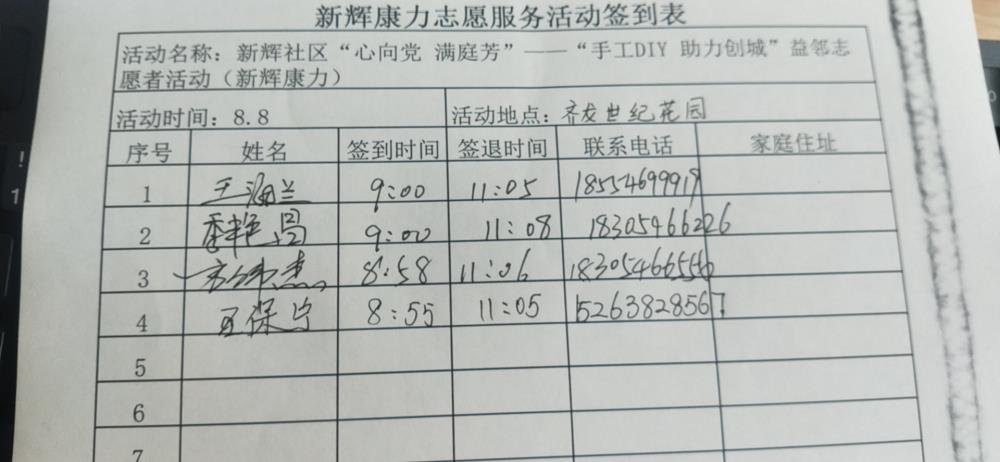 新辉康力志愿服务活动签到表
活动名称：新辉社区“心向党 满庭芳”——“手工DIY 助力创城”益邻志
愿者活动（新辉康力）
活动时间：8.8 活动地点：齐发世纪花园
序号 姓名 签到时间 签退时间 联系电话 家庭住址
1 王海兰 9:00 11:05 18554699919
2 9:00 11:08 18305466226
3 8:58 11:06 18305466556
4 王保宁 8:55 11:05 15263828567
5
6
7